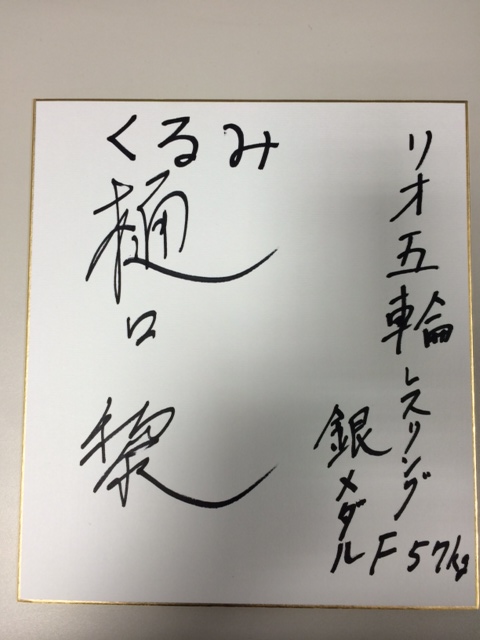 リオ五輪レスリング
銀メダル F57kg
くるみ
樋口 黎